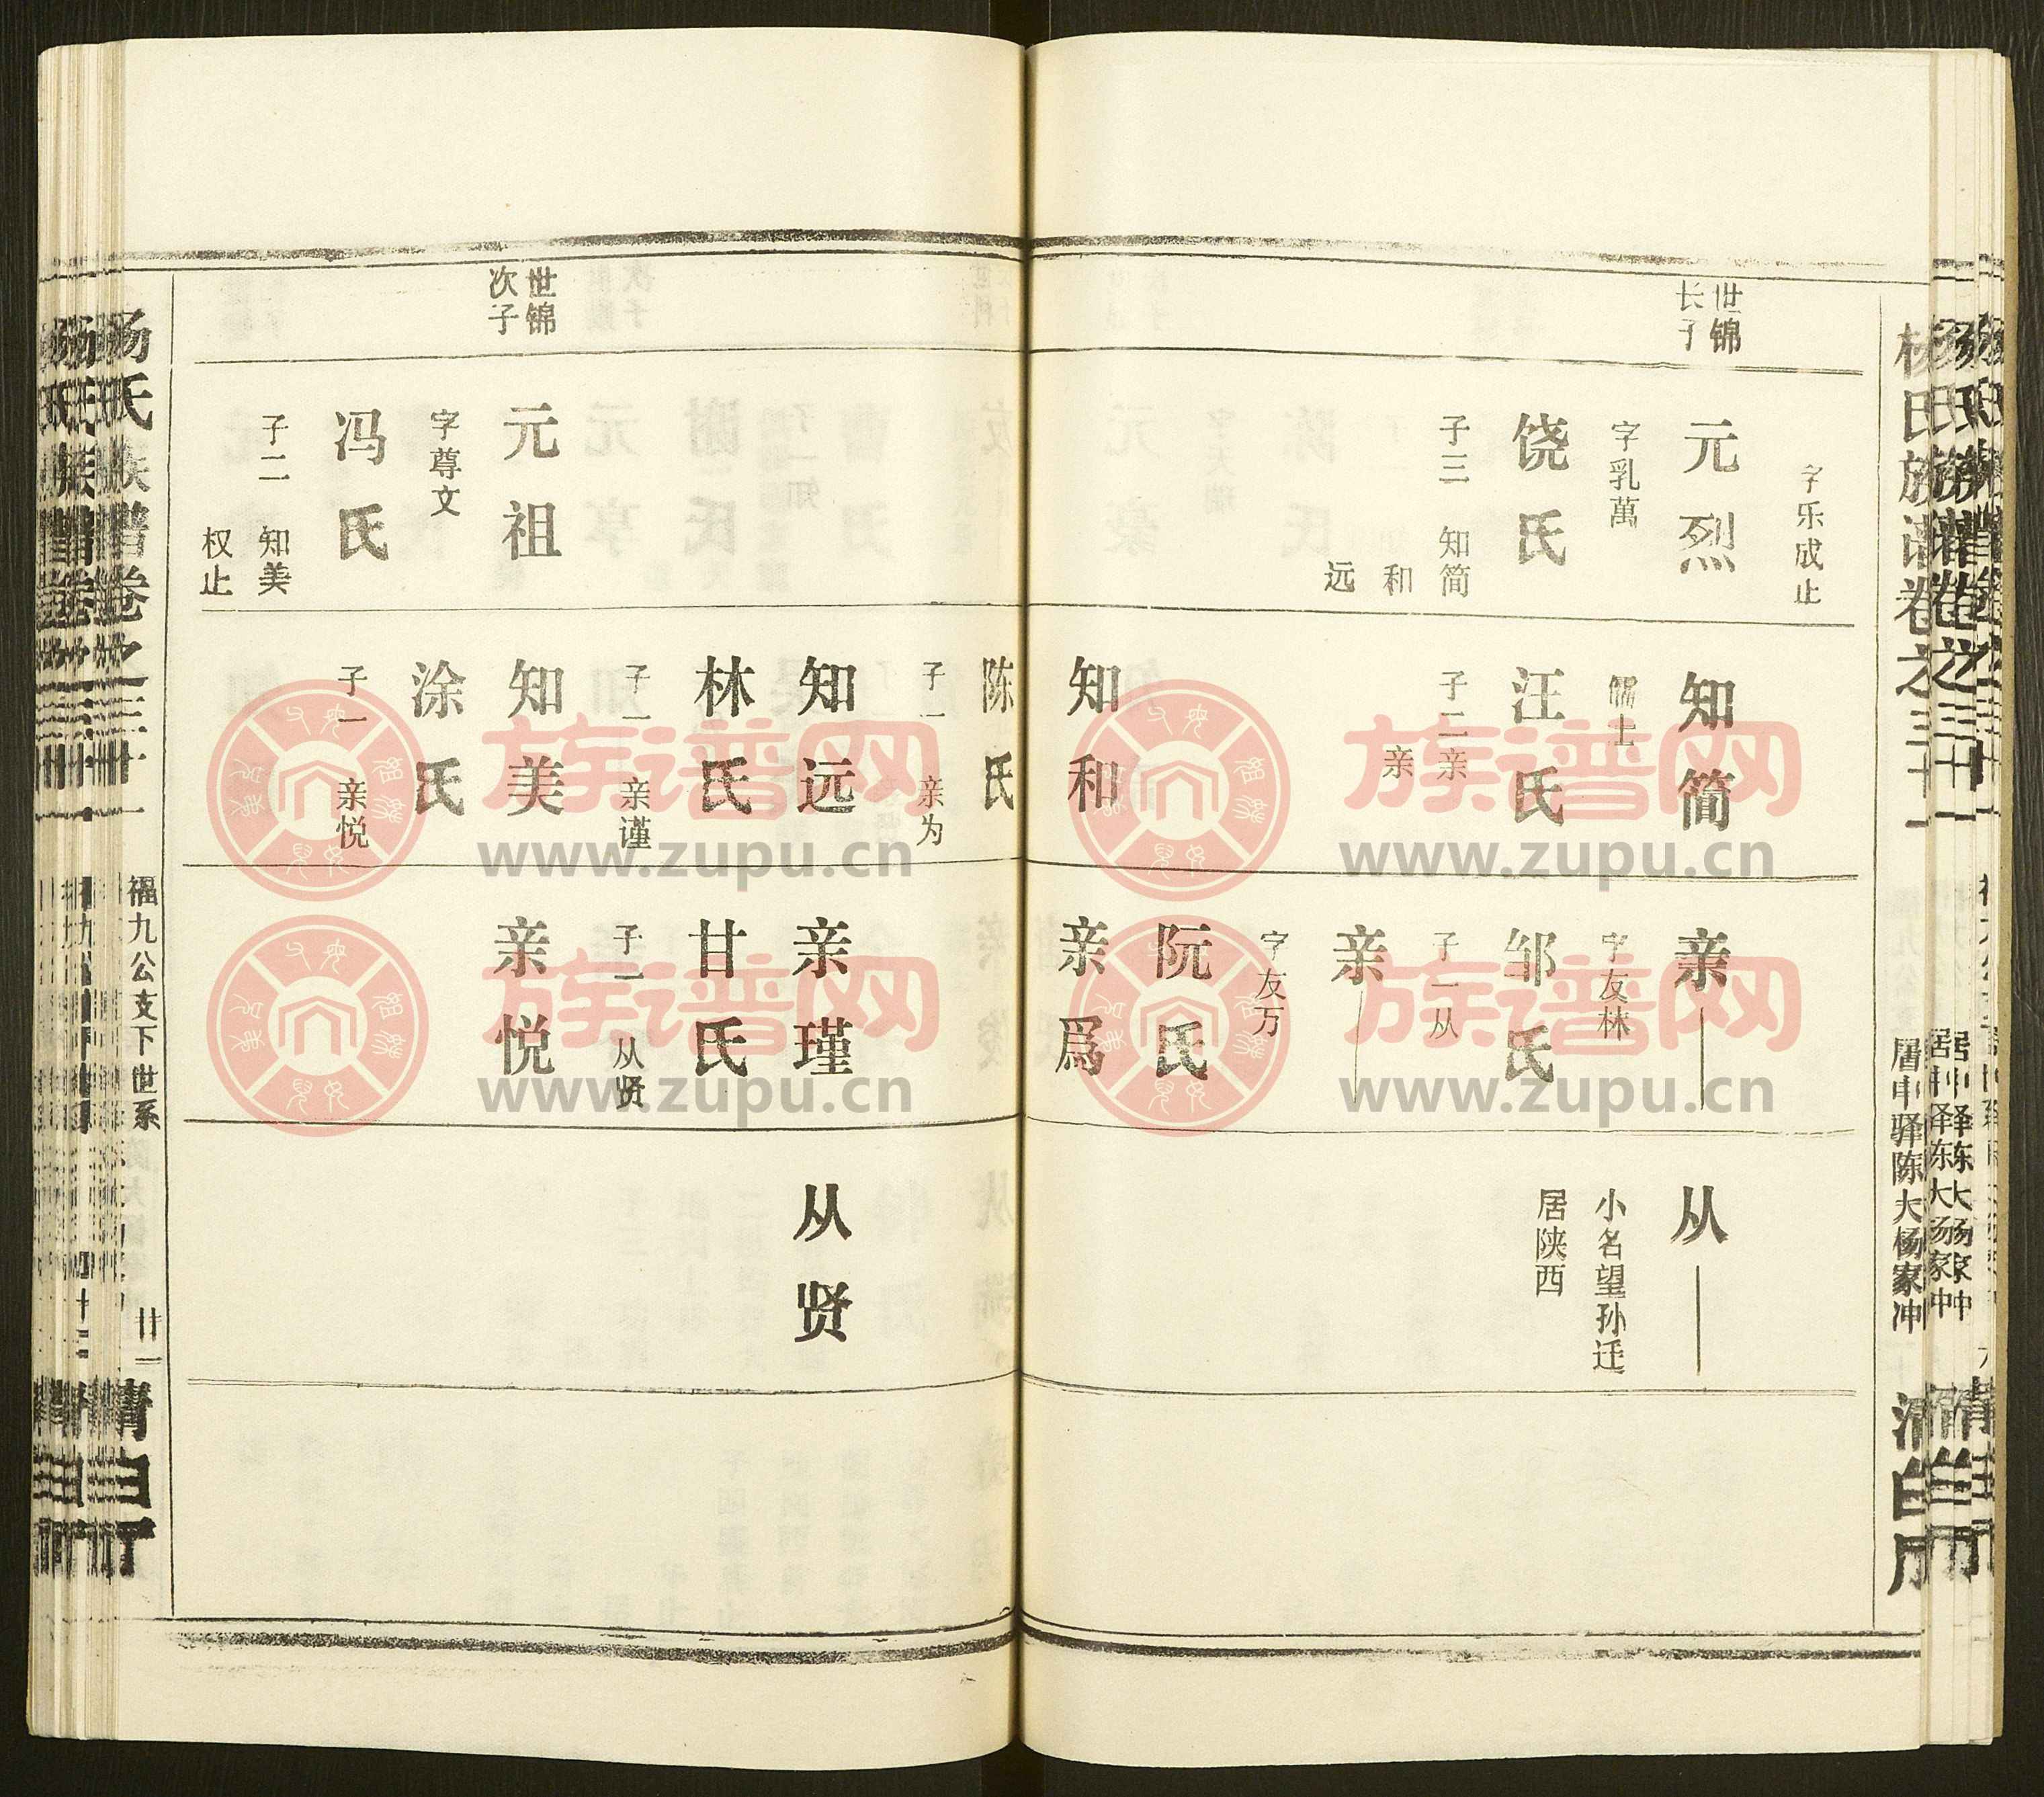 杨氏族谱卷之三十一
居中驿陈大杨家冲
清白
世锦
长子
字乐成止
元烈
字乳萬
饶氏
子三 知简
和
远
知简
汪氏
子二亲
亲
知和
陈氏
子一 亲为
知远
林氏
子一 亲谨
知美
涂氏
子一 亲悦
世锦
次子
元祖
字尊文
冯氏
子二 知美
权止
亲
字友林
邹氏
子一从
亲
字友万
阮氏
亲爲
亲瑾
甘氏
子一 从贤
亲悦
从
小名望孙迁
居陕西
从贤
杨氏族谱卷之三十一
福九公支下世系
廿一
清白
族谱网
www.zupu.cn
族谱网
www.zupu.cn
族谱网
www.zupu.cn
族谱网
www.zupu.cn